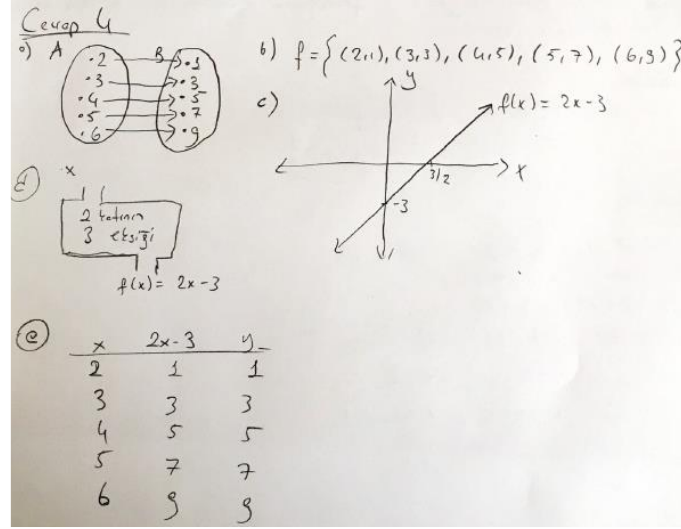 Cevap 4
a) A B
.2 .1
.3 .3
.4 .5
.5 .7
.6 .9
b) f = { (2,1), (3,3), (4,5), (5,7), (6,9) }
c) y
f(x) = 2x-3
x
3/2
-3
d) x
2 katının
3 eksiği
f(x) = 2x-3
e
x 2x-3 y
2 1 1
3 3 3
4 5 5
5 7 7
6 9 9